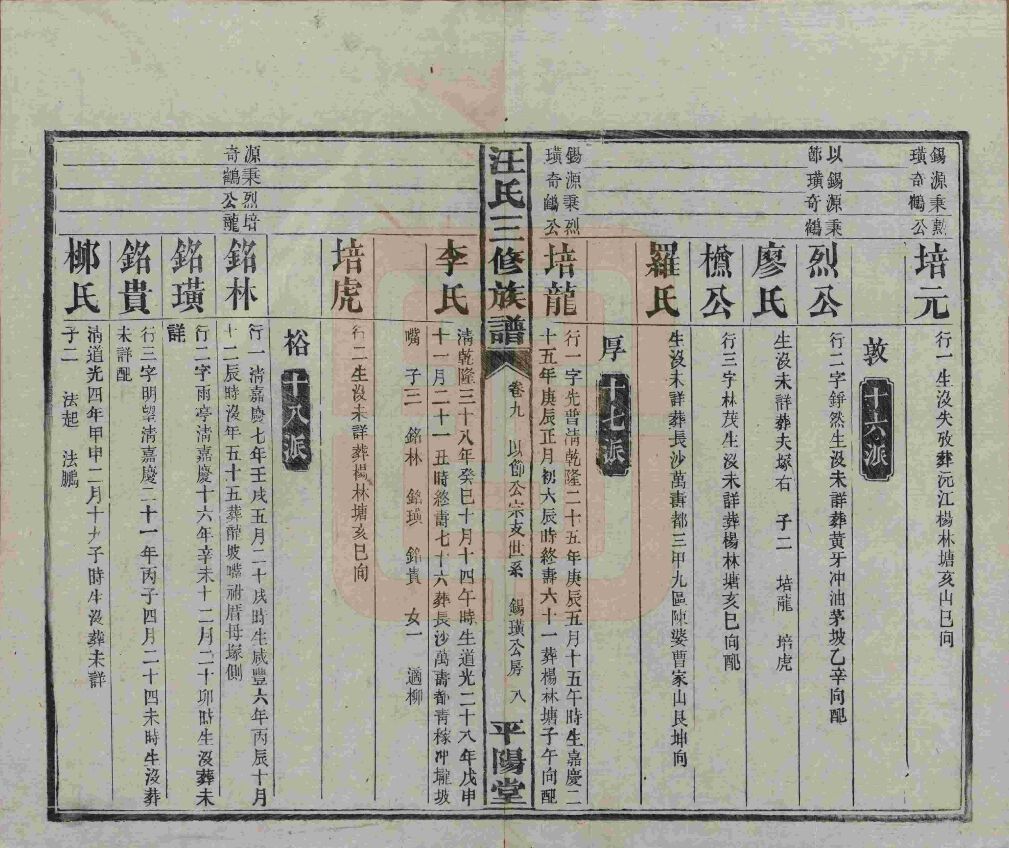 錫源秉勲
璜奇鶴公
培元
行一生沒失攷葬沅江楊林塘亥山巳向
敦 十六派
以錫源秉
節璜奇鶴
烈公
行二字錚然生沒未詳葬黃牙冲油茅坡乙辛向配
廖氏
生沒未詳葬夫塚右 子二 培龍 培虎
檢公
行三字林茂生沒未詳葬楊林塘亥巳向配
羅氏
生沒未詳葬長沙萬壽都三甲九區陳婆曹家山艮坤向
厚 十七派
錫源秉烈
璜奇鶴公
培龍
行一字先普清乾隆二十五年庚辰五月十五午時生嘉慶二
十五年庚辰正月初六辰時終壽六十一葬楊林塘子午向配
汪氏三修族譜 卷九 以節公宗支世系 錫璜公房 八 平陽堂
李氏
清乾隆三十八年癸巳十月十四午時生道光二十八年戊申
十一月二十一丑時終壽七十六葬長沙萬壽都青稼冲壠坡
嘴 子三 銘林 銘璜 銘貴 女一 適柳
培虎
行二生沒未詳葬楊林塘亥巳向
裕 十八派
源秉烈培
奇鶴公龍
銘林
行一清嘉慶七年壬戌五月二十戌時生咸豐六年丙辰十月
十二辰時沒年五十五葬龍坡嘴祔厝母塚側
銘璜
行二字雨亭清嘉慶十六年辛未十二月二十卯時生沒葬未
詳
銘貴
行三字明望清嘉慶二十一年丙子四月二十四未時生沒葬
未詳配
柳氏
清道光四年甲申二月十九子時生沒葬未詳
子二 法起 法鵬